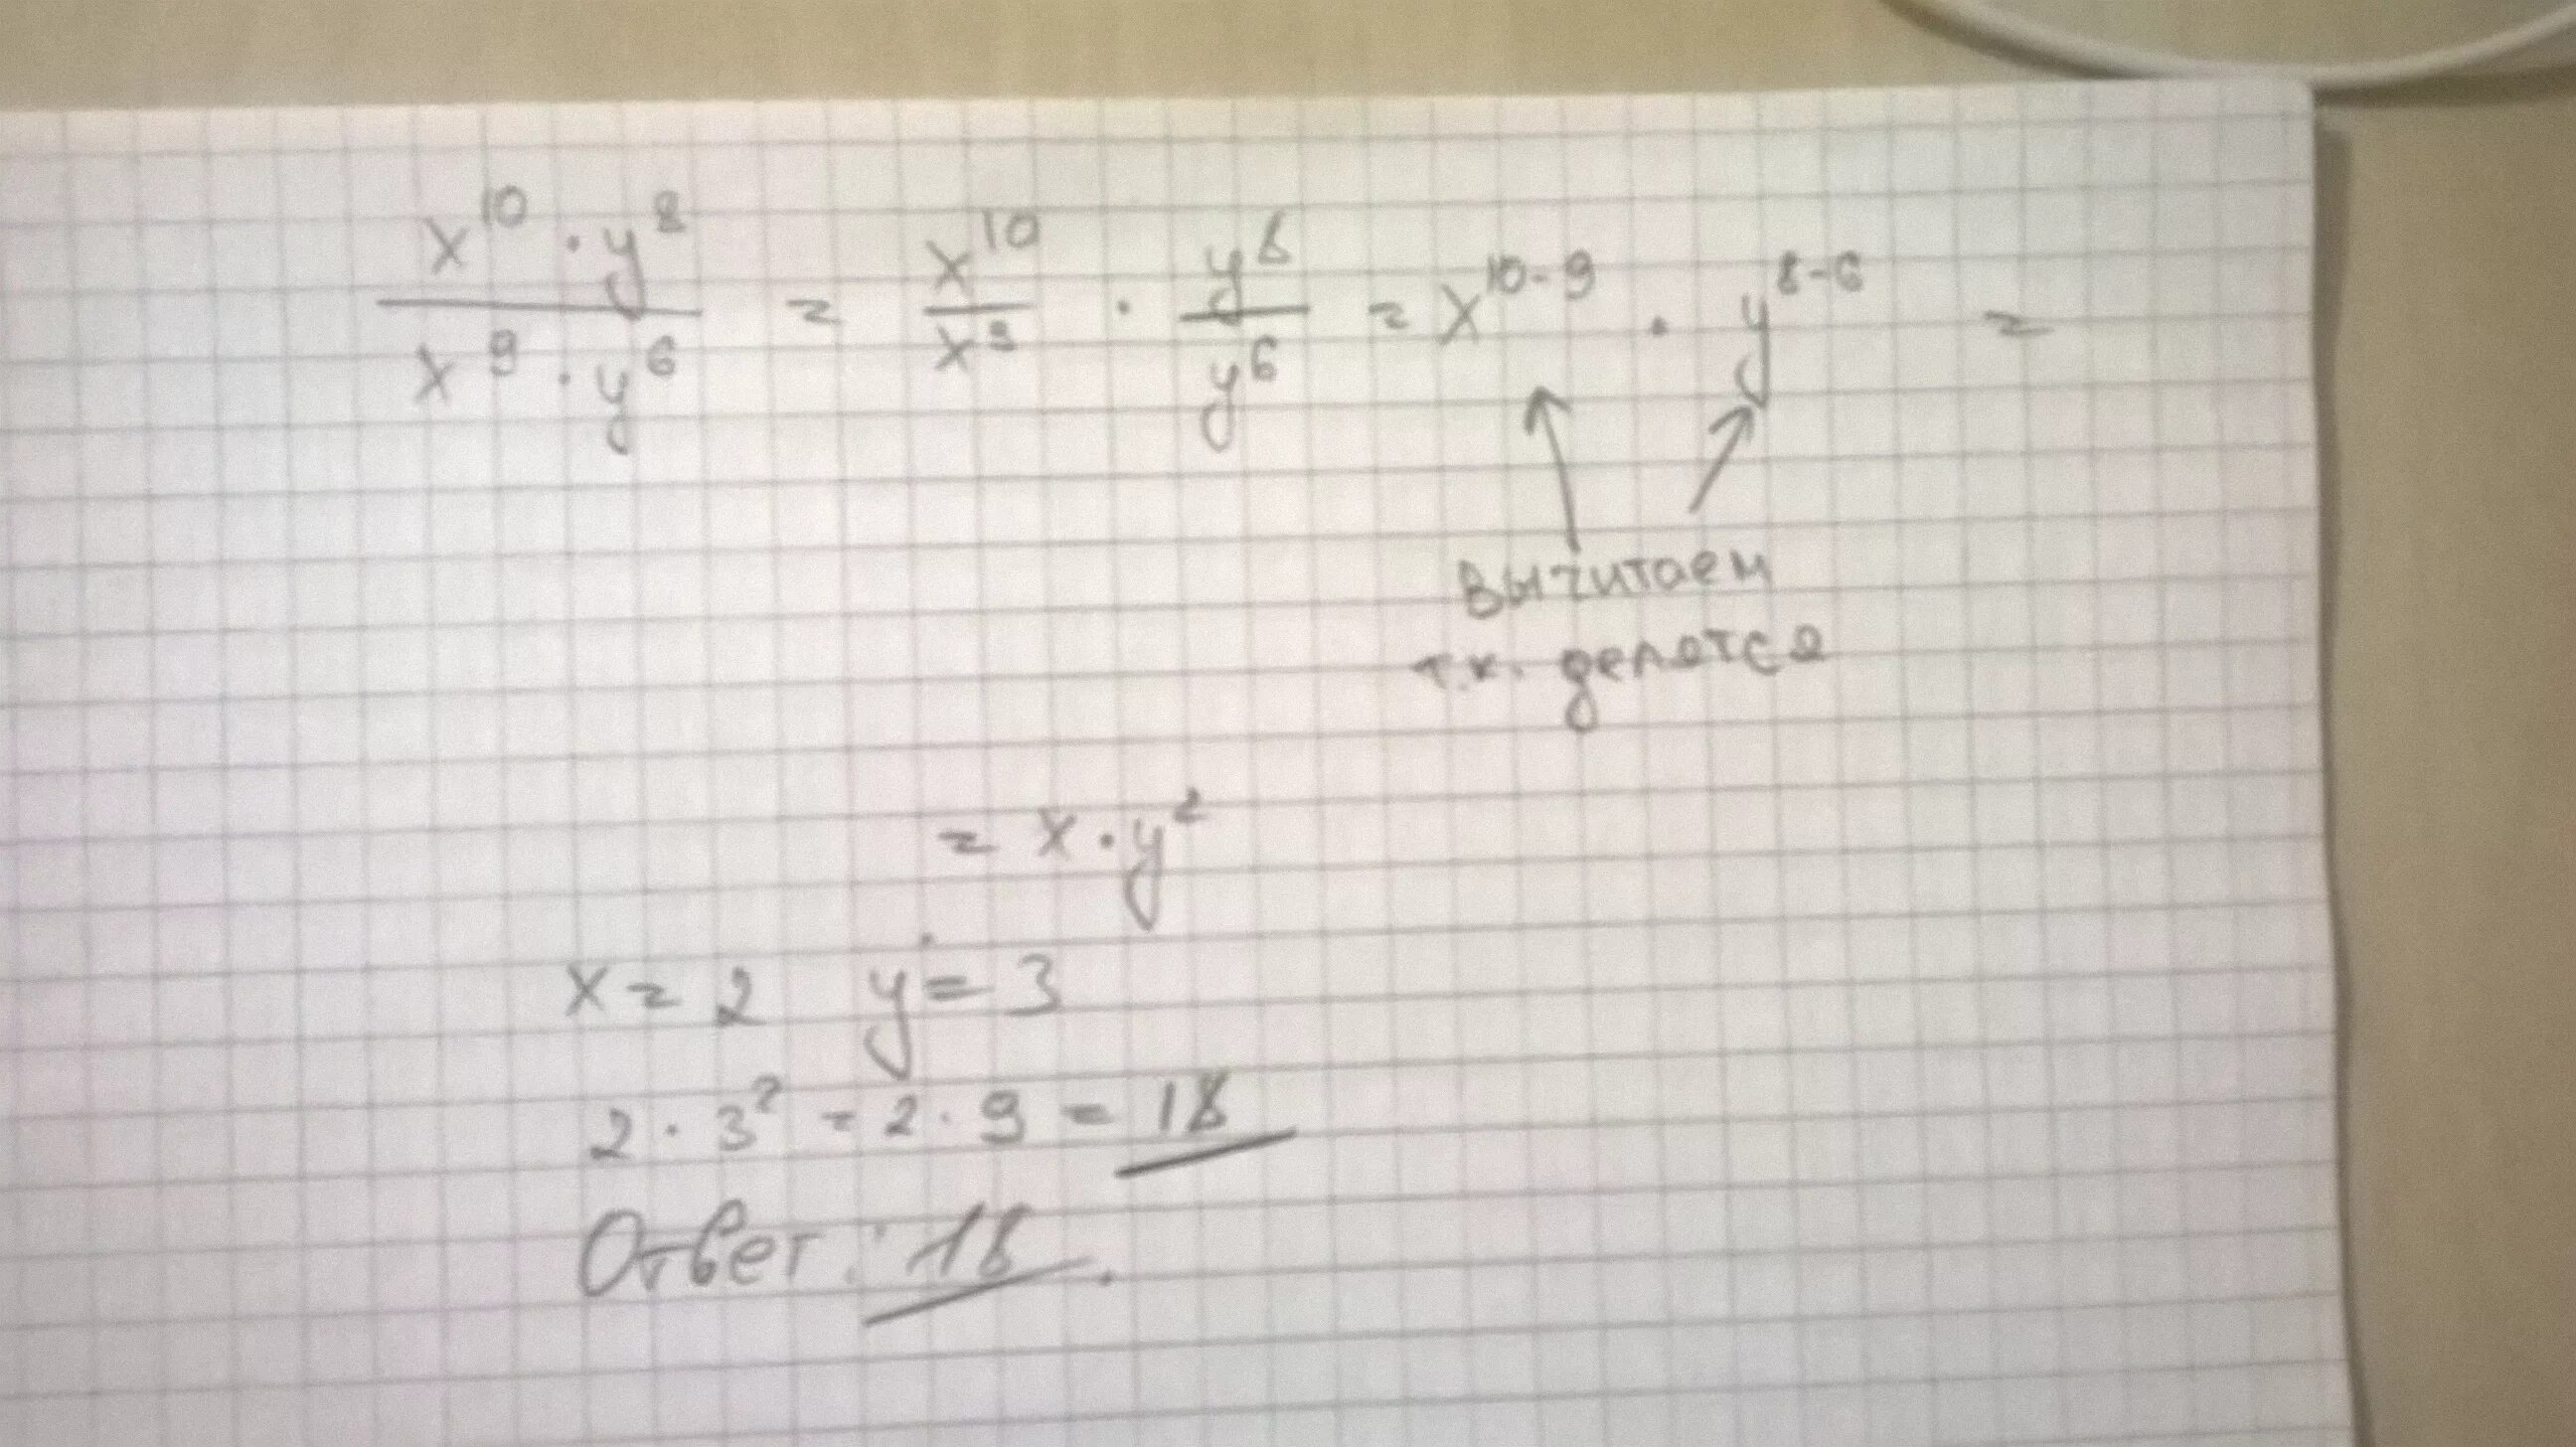 x¹⁰ · y⁸ / x⁹ · y⁶ = x¹⁰ / x⁹ · y⁸ / y⁶ = x¹⁰⁻⁹ · y⁸⁻⁶ =
вычитаем
т.к. делятся
= x · y²
x = 2 y = 3
2 · 3² = 2 · 9 = 18
Ответ: 18.